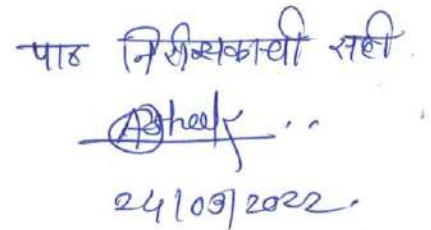 पाठ निरीक्षकाची सही
24/09/2022.